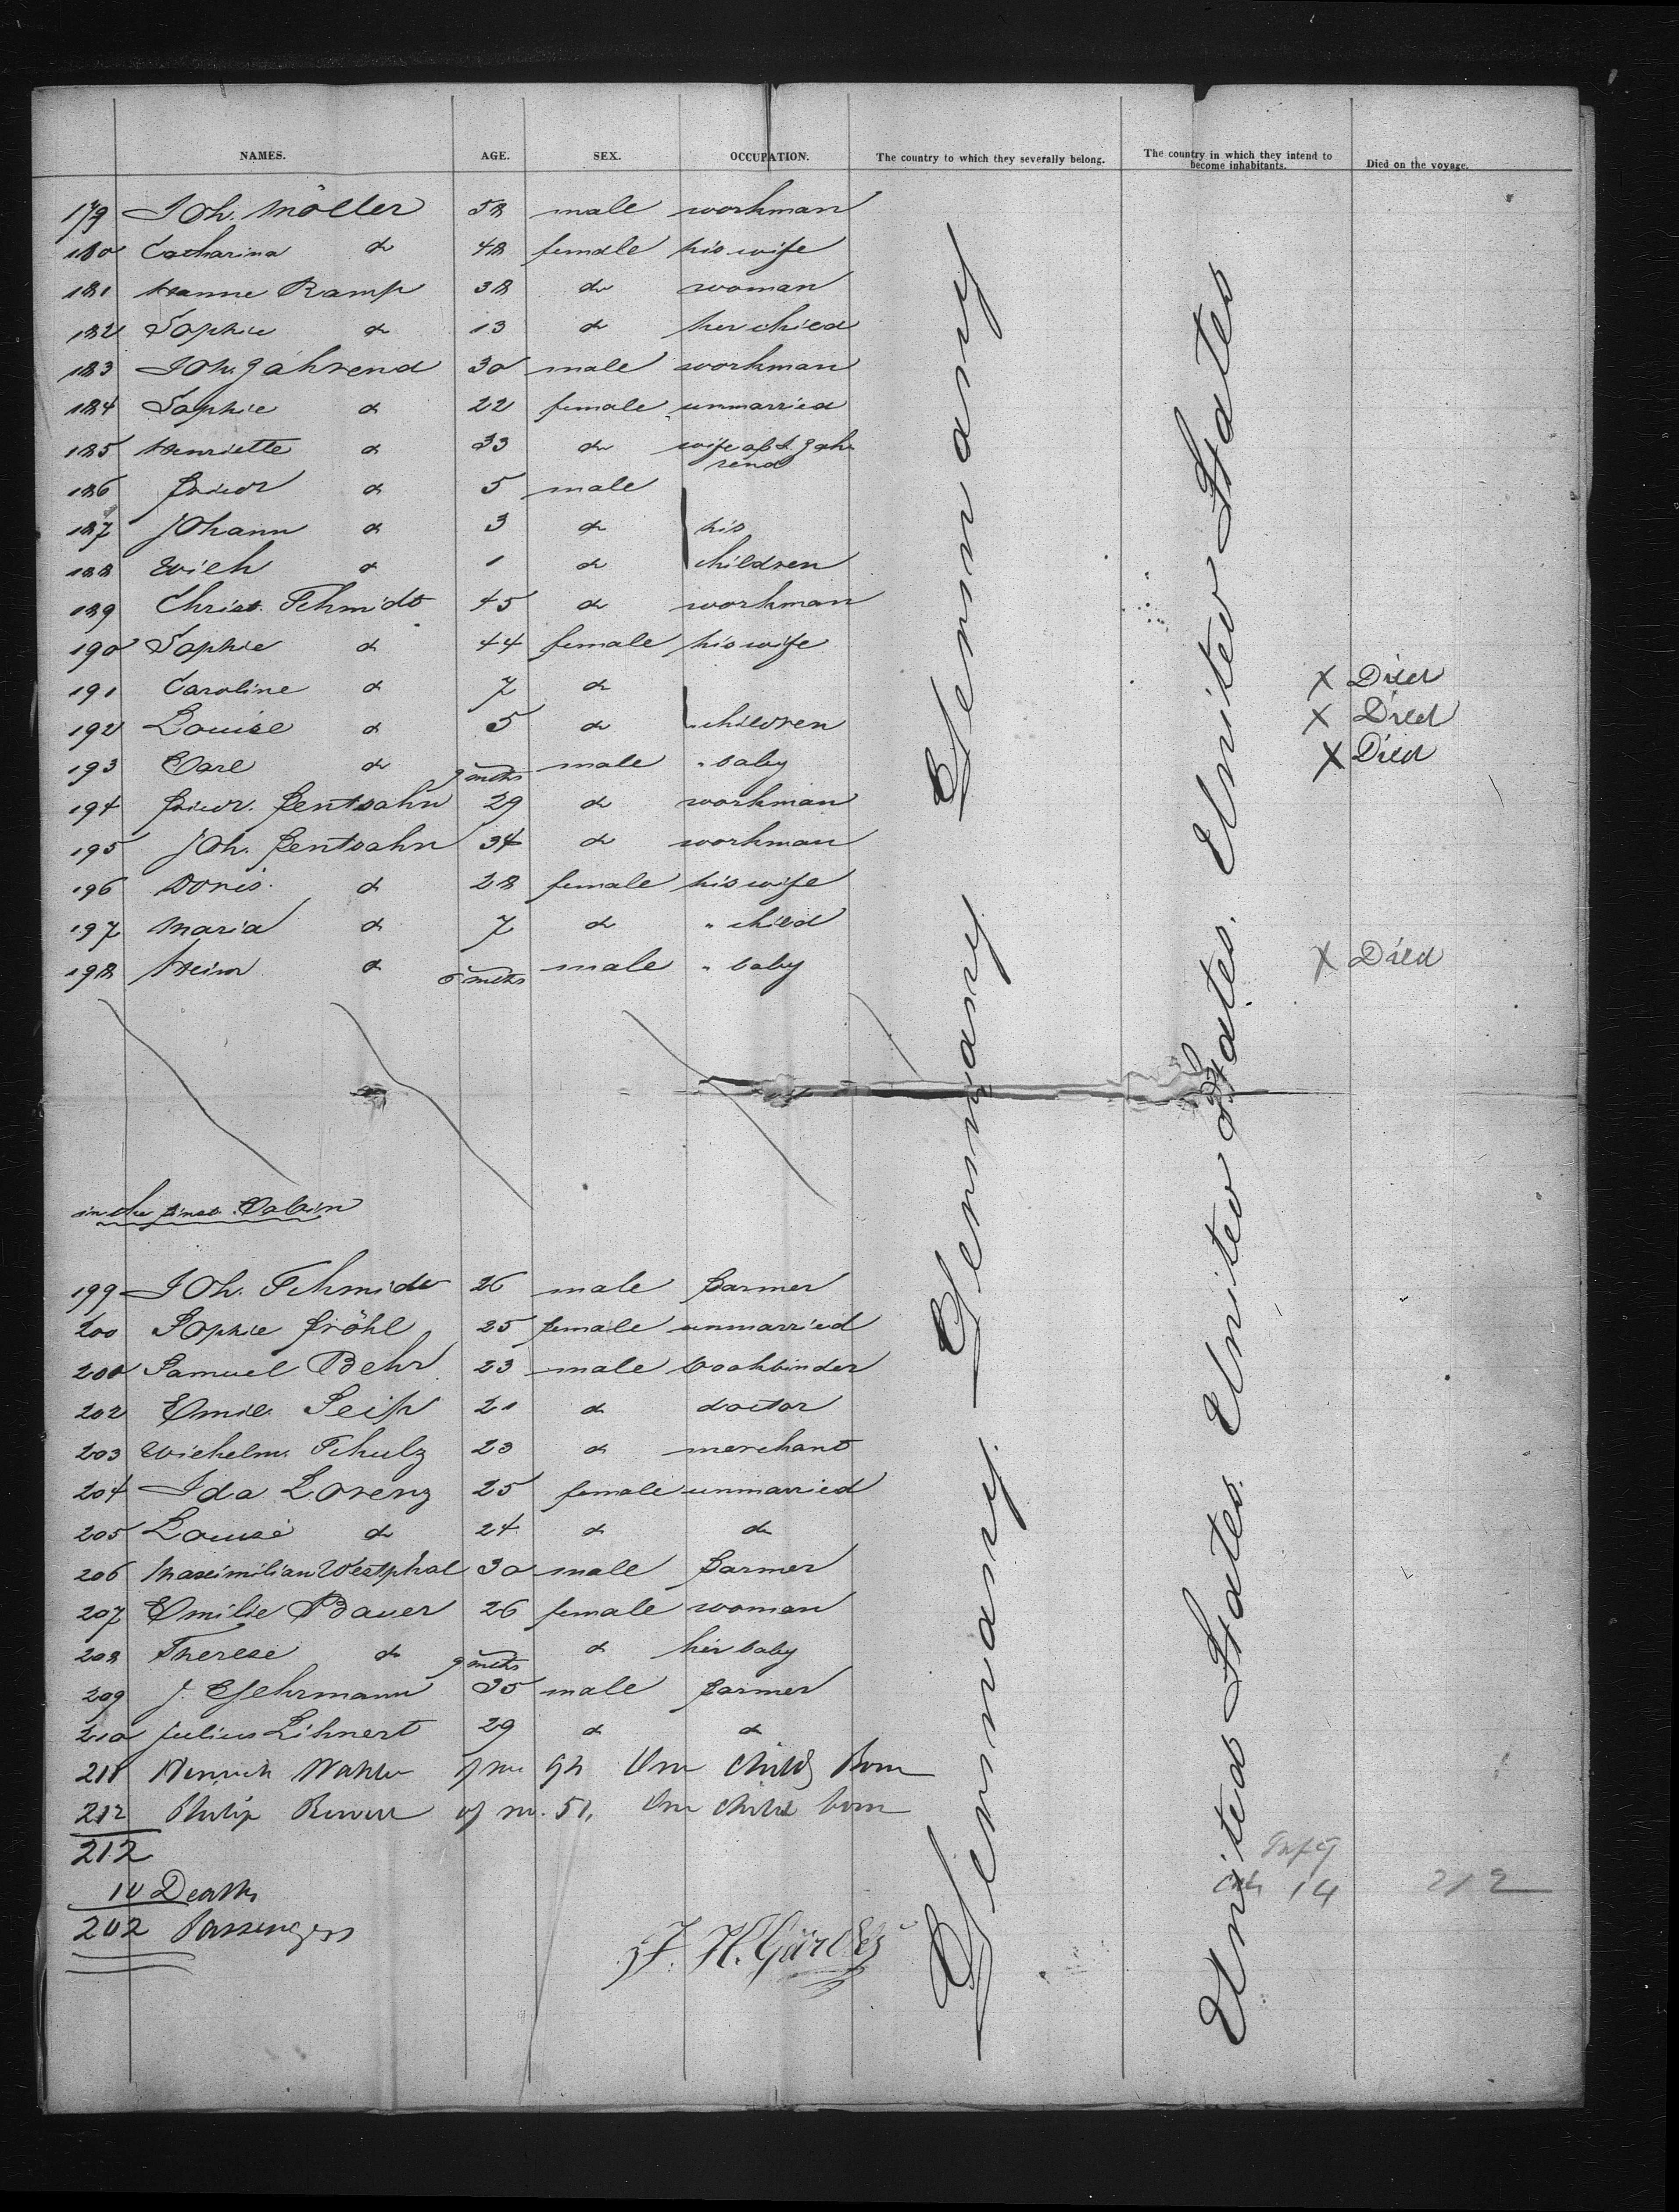 NAMES. AGE. SEX. OCCUPATION. The country to which they severally belong. The country in which they intend to become inhabitants. Died on the voyage.
179 Joh. Möller 58 male workman
180 Catharina do 48 female his wife
181 Hanne Ramp 38 do woman
182 Sophie do 13 do her child
183 Joh. Gahrend 30 male workman
184 Sophie do 22 female unmarried
185 Henriette do 33 do wife of J. Gah
rend
186 Friedr do 5 male
187 Johann do 3 do his
188 Wilh do 1 do children
189 Christ. Schmidt 45 do workman
190 Sophie do 44 female his wife
191 Caroline do 7 do X Died
192 Louise do 5 do " children X Died
193 Carl do 9 mths male " baby X Died
194 Friedr. Fentzahn 29 do workman
195 Joh. Fentzahn 34 do workman
196 Doris do 28 female his wife
197 Maria do 7 do " child
198 Heinr do 6 mths male " baby X Died
in the first Cabin
199 Joh. Schmidt 26 male farmer
200 Sophie Fröhl 25 female unmarried
201 Samuel Behr 23 male bookbinder
202 Emil Seip 21 do doctor
203 Wilhelm Schulz 23 do merchant
204 Ida Lorenz 25 female unmarried
205 Louise do 24 do do
206 Maximilian Westphal 30 male farmer
207 Emilie Bauer 26 female woman
208 Therese do 9 mths do her baby
209 J. Gehrmann 35 male farmer
210 Julius Lihnert 29 do do
211 Heinrich of no One Child Born
212 Philip of no. 51, One child born
212
10 Deaths
202 Passengers
14 212
Germany. Germany. Germany Germany
United States. United States. United States. United States